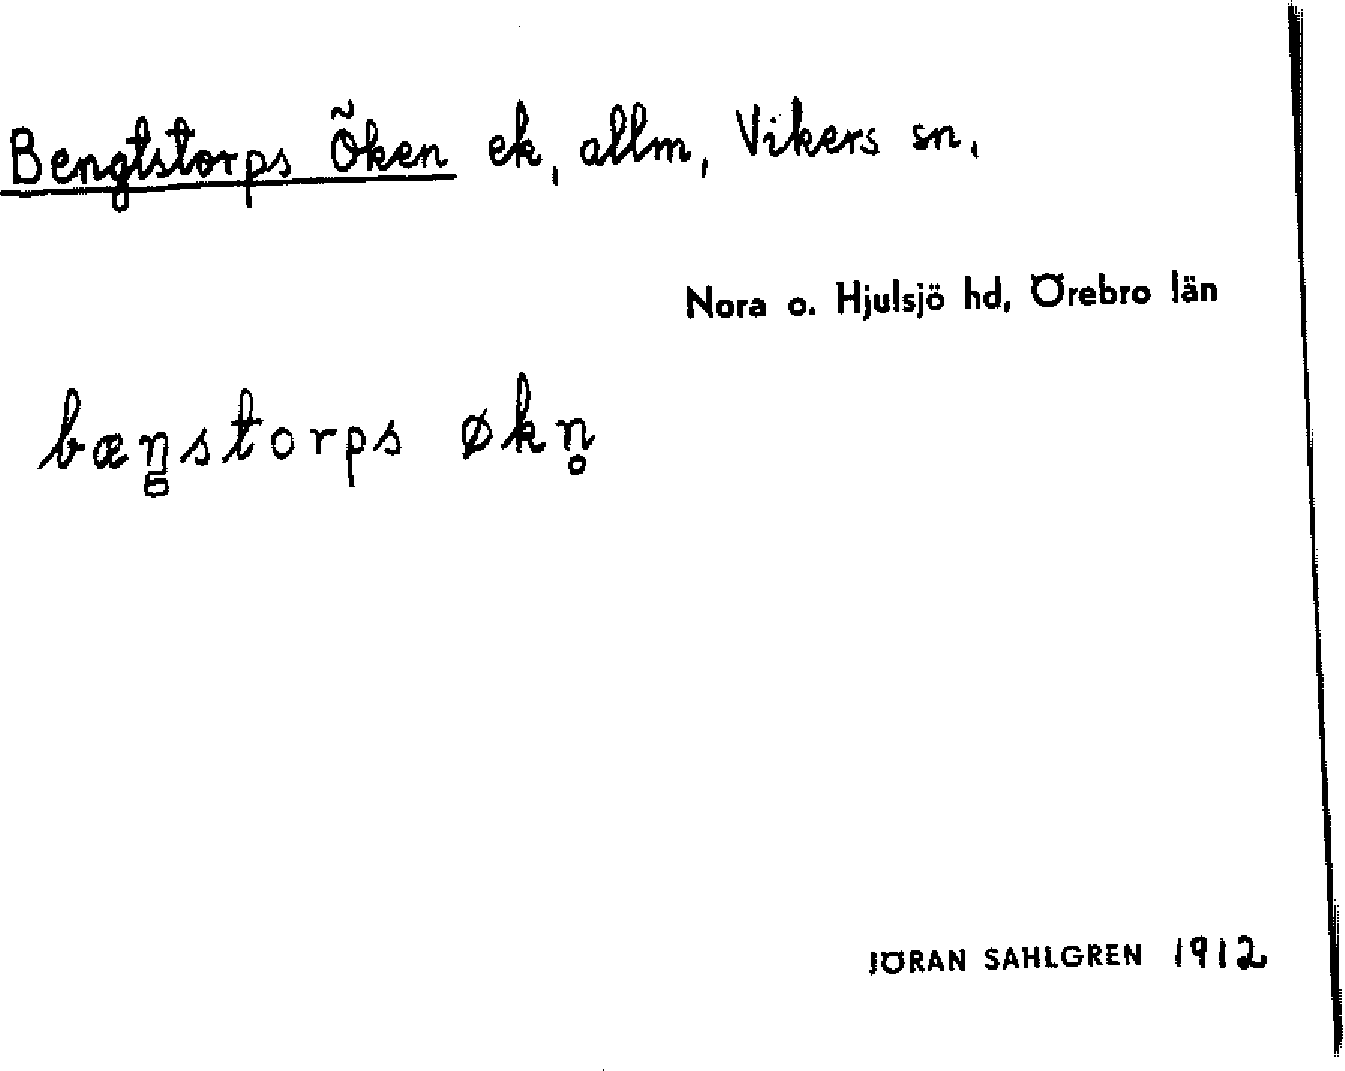 Bengtstorps Öken ek, allm, Vikers sn,
Nora o. Hjulsjö hd, Örebro län
bæŋ̥storps økn̥
JÖRAN SAHLGREN 1912